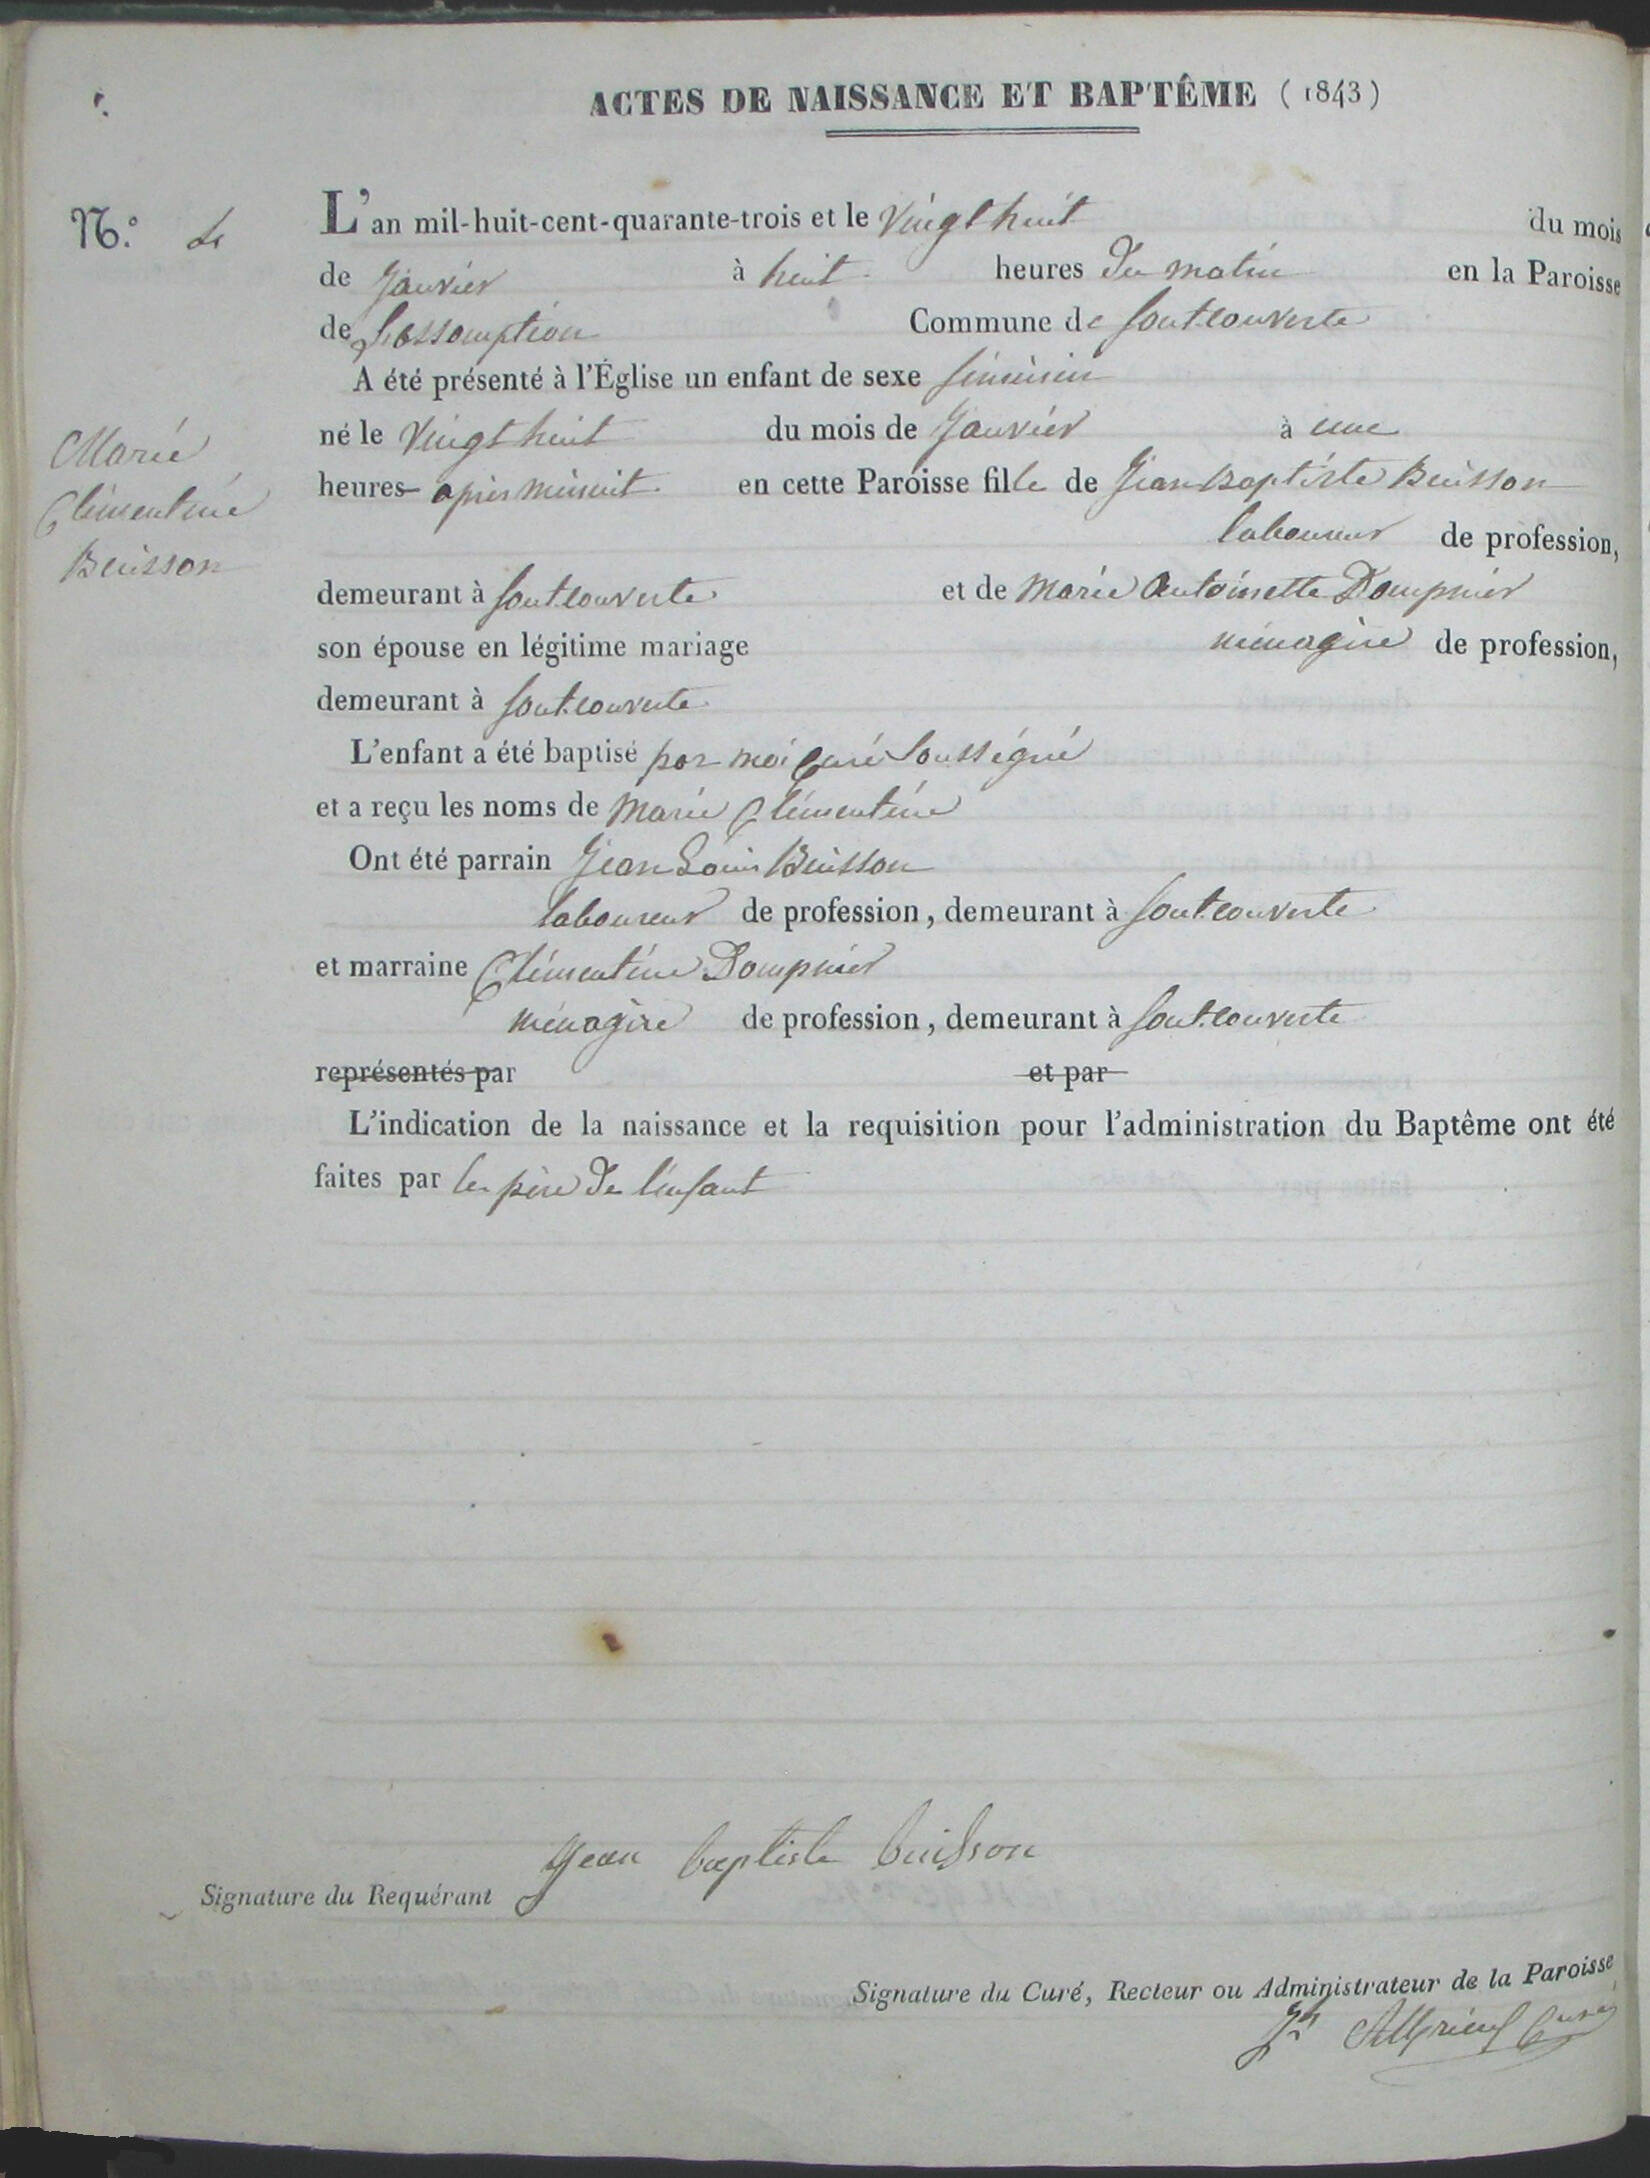 ACTES DE NAISSANCE ET BAPTÊME (1843)
N.º
L'an mil-huit-cent-quarante-trois et le Vingt huit du mois
de Janvier à huit heures du matin en la Paroisse
de L'assomption Commune de fontcouverte
A été présenté à l'Église un enfant de sexe féminin
né le Vingt huit du mois de Janvier à une
heures après minuit en cette Paroisse fille de Jean Baptiste Buisson
laboureur de profession,
demeurant à fontcouverte et de Marie Antoinette Dompnier
son épouse en légitime mariage ménagère de profession,
demeurant à fontcouverte
L'enfant a été baptisé par moi Curé Soussigné
et a reçu les noms de Marie Clémentine
Ont été parrain Jean Louis Buisson
laboureur de profession, demeurant à fontcouverte
et marraine Clémentine Dompnier
ménagère de profession, demeurant à fontcouverte
représentés par et par
L'indication de la naissance et la requisition pour l'administration du Baptême ont été
faites par le père de l'enfant
Marie
Clémentine
Buisson
jean baptiste buisson
Signature du Requérant
Signature du Curé, Recteur ou Administrateur de la Paroisse
Curé